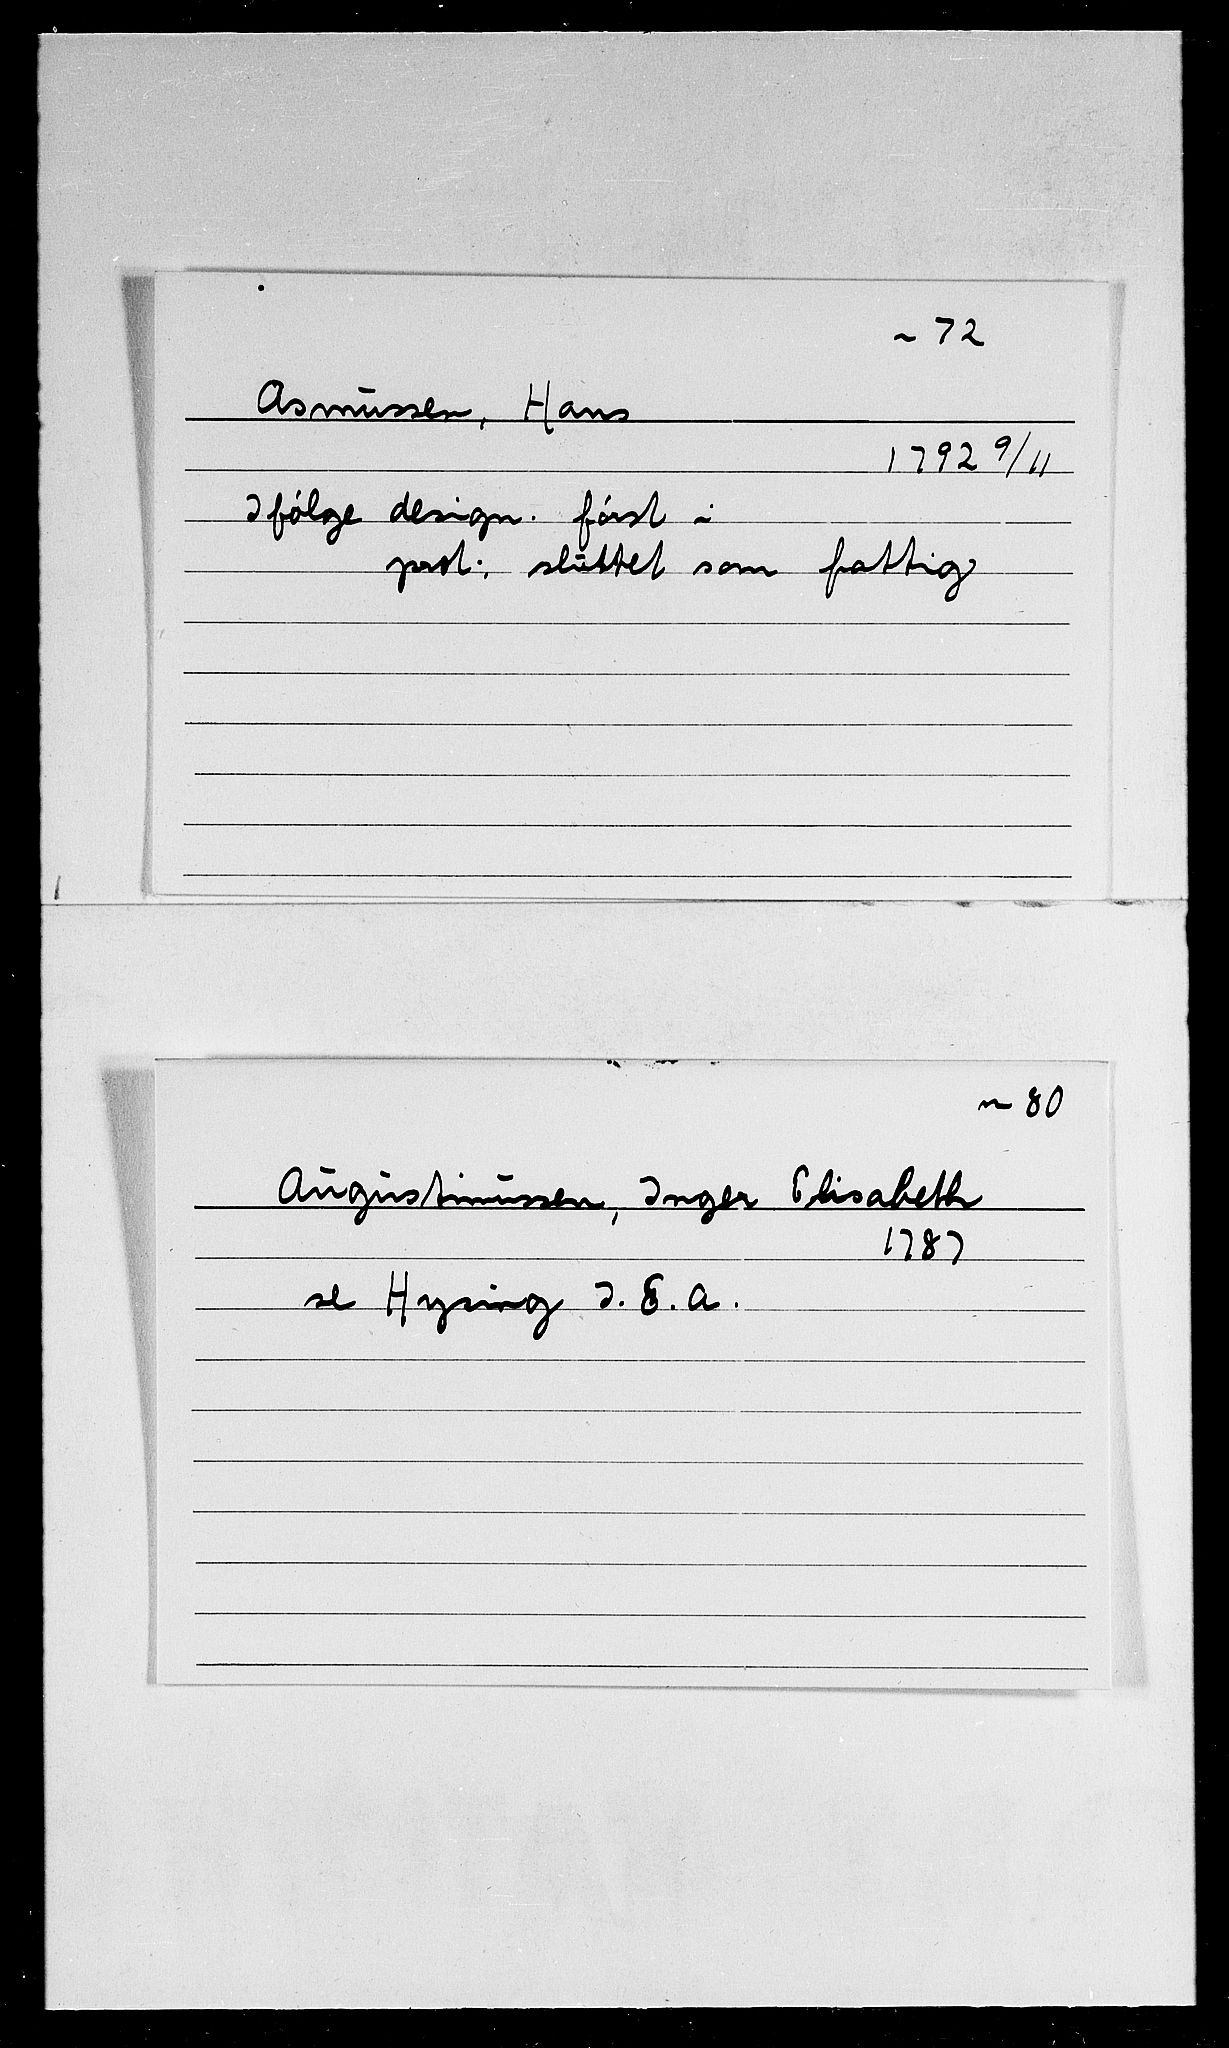 ~ 72
Asmussen, Hans
1792 9/11
Ifölge design. först i
prot.; sluttet som fattig
n 80
Augustinussen, Inger Elisabeth
1787
se Hysing I. E. A.